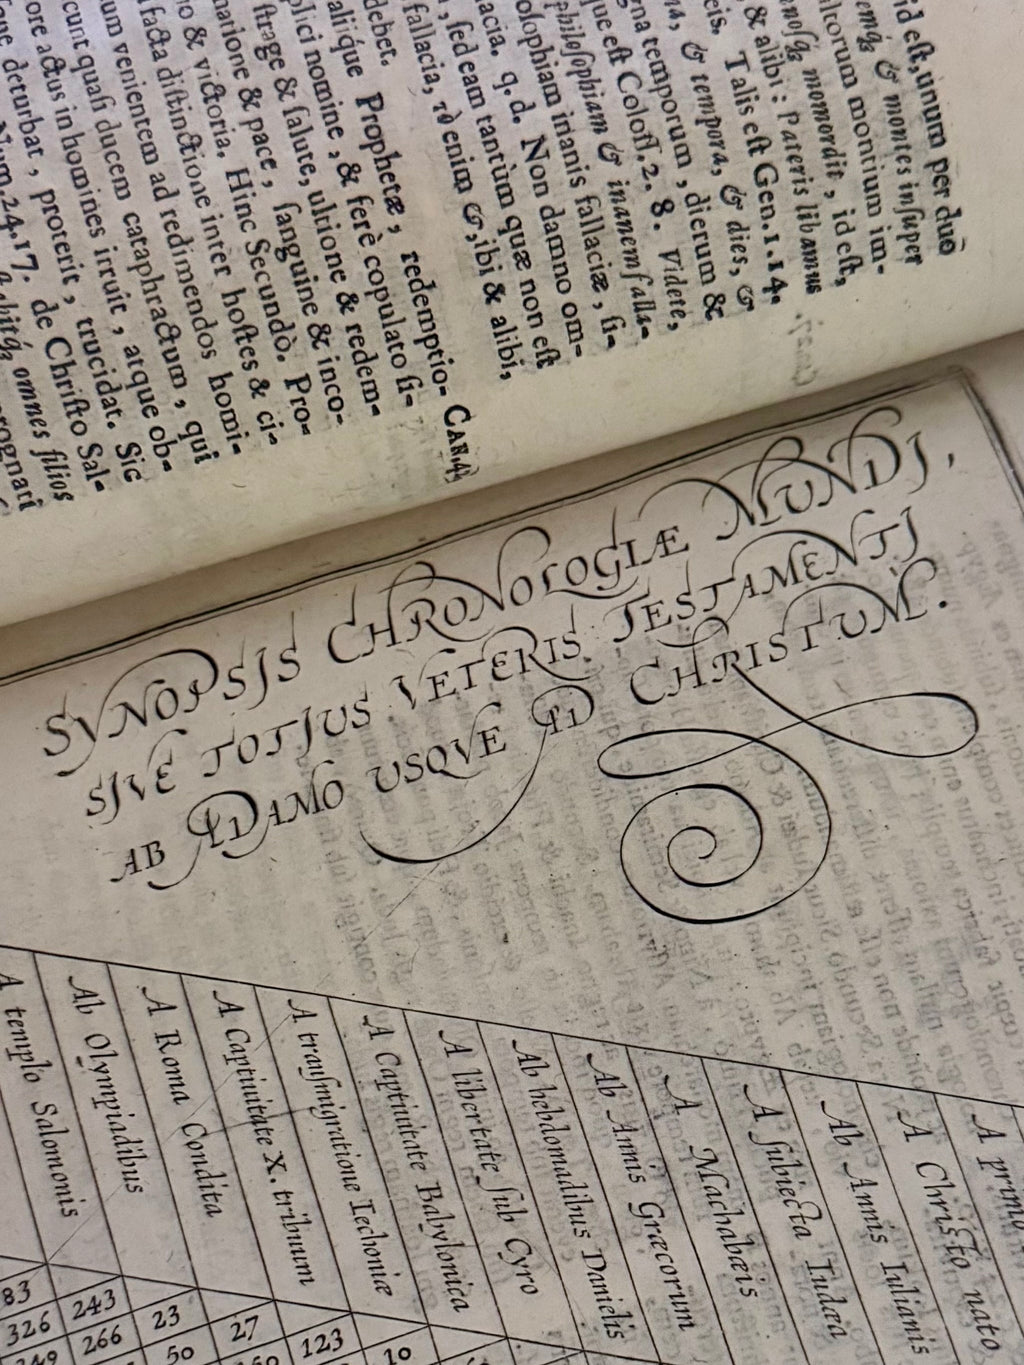 id eſt, unum per duō
emq́; & montes inſuper
altorum montium im-
momordit, id eſt,
& alibi : Pateris libamus
eis. Talis eſt Gen.1.14.
na, & tempora, & dies, &
gna temporum, dierum &
que eſt Coloſſ.2.8. Videte,
philoſophiam & inanem falla-
oſophiam inanis fallaciæ, ſi-
lacia. q. d. Non damno om-
, ſed eam tantùm quæ non eſt
fallacia, τὸ enim &, ibi & alibi,
debet.
aliq́ue Prophetæ, redemptio- CAN.4.
plici nomine, & ferè copulato ſi-
ſtrage & ſalute, ultione & redem-
natione & pace, ſanguine & inco-
no & victoria. Hinc Secundò. Pro-
facta diſtinctione inter hoſtes & ci-
um venientem ad redimendos homi-
cunt quaſi ducem cataphractum, qui
ore actus in homines irruit, atque ob-
deturbat, proterit, trucidat. Sic
Num.24.17. de Chriſto Sal-
omnes filios
prognati
SYNOPSIS CHRONOLOGIÆ MUNDI,
SIVE TOTIUS VETERIS TESTAMENTI
AB ADAMO USQVE AD CHRISTUM.
A templo Salomonis
Ab Olympiadibus
A Roma Condita
A Captiuitate X. tribuum
A tranſmigratione Iechoniæ
A Captiuitate Babylonica
A libertate ſub Cyro
Ab hebdomadibus Danielis
Ab Annis Græcorum
A Machabæis
A ſubiecta Iudæa
Ab Annis Iulianis
A Chriſto nato
A primo
83
326 243
266 23
50 27
123
10